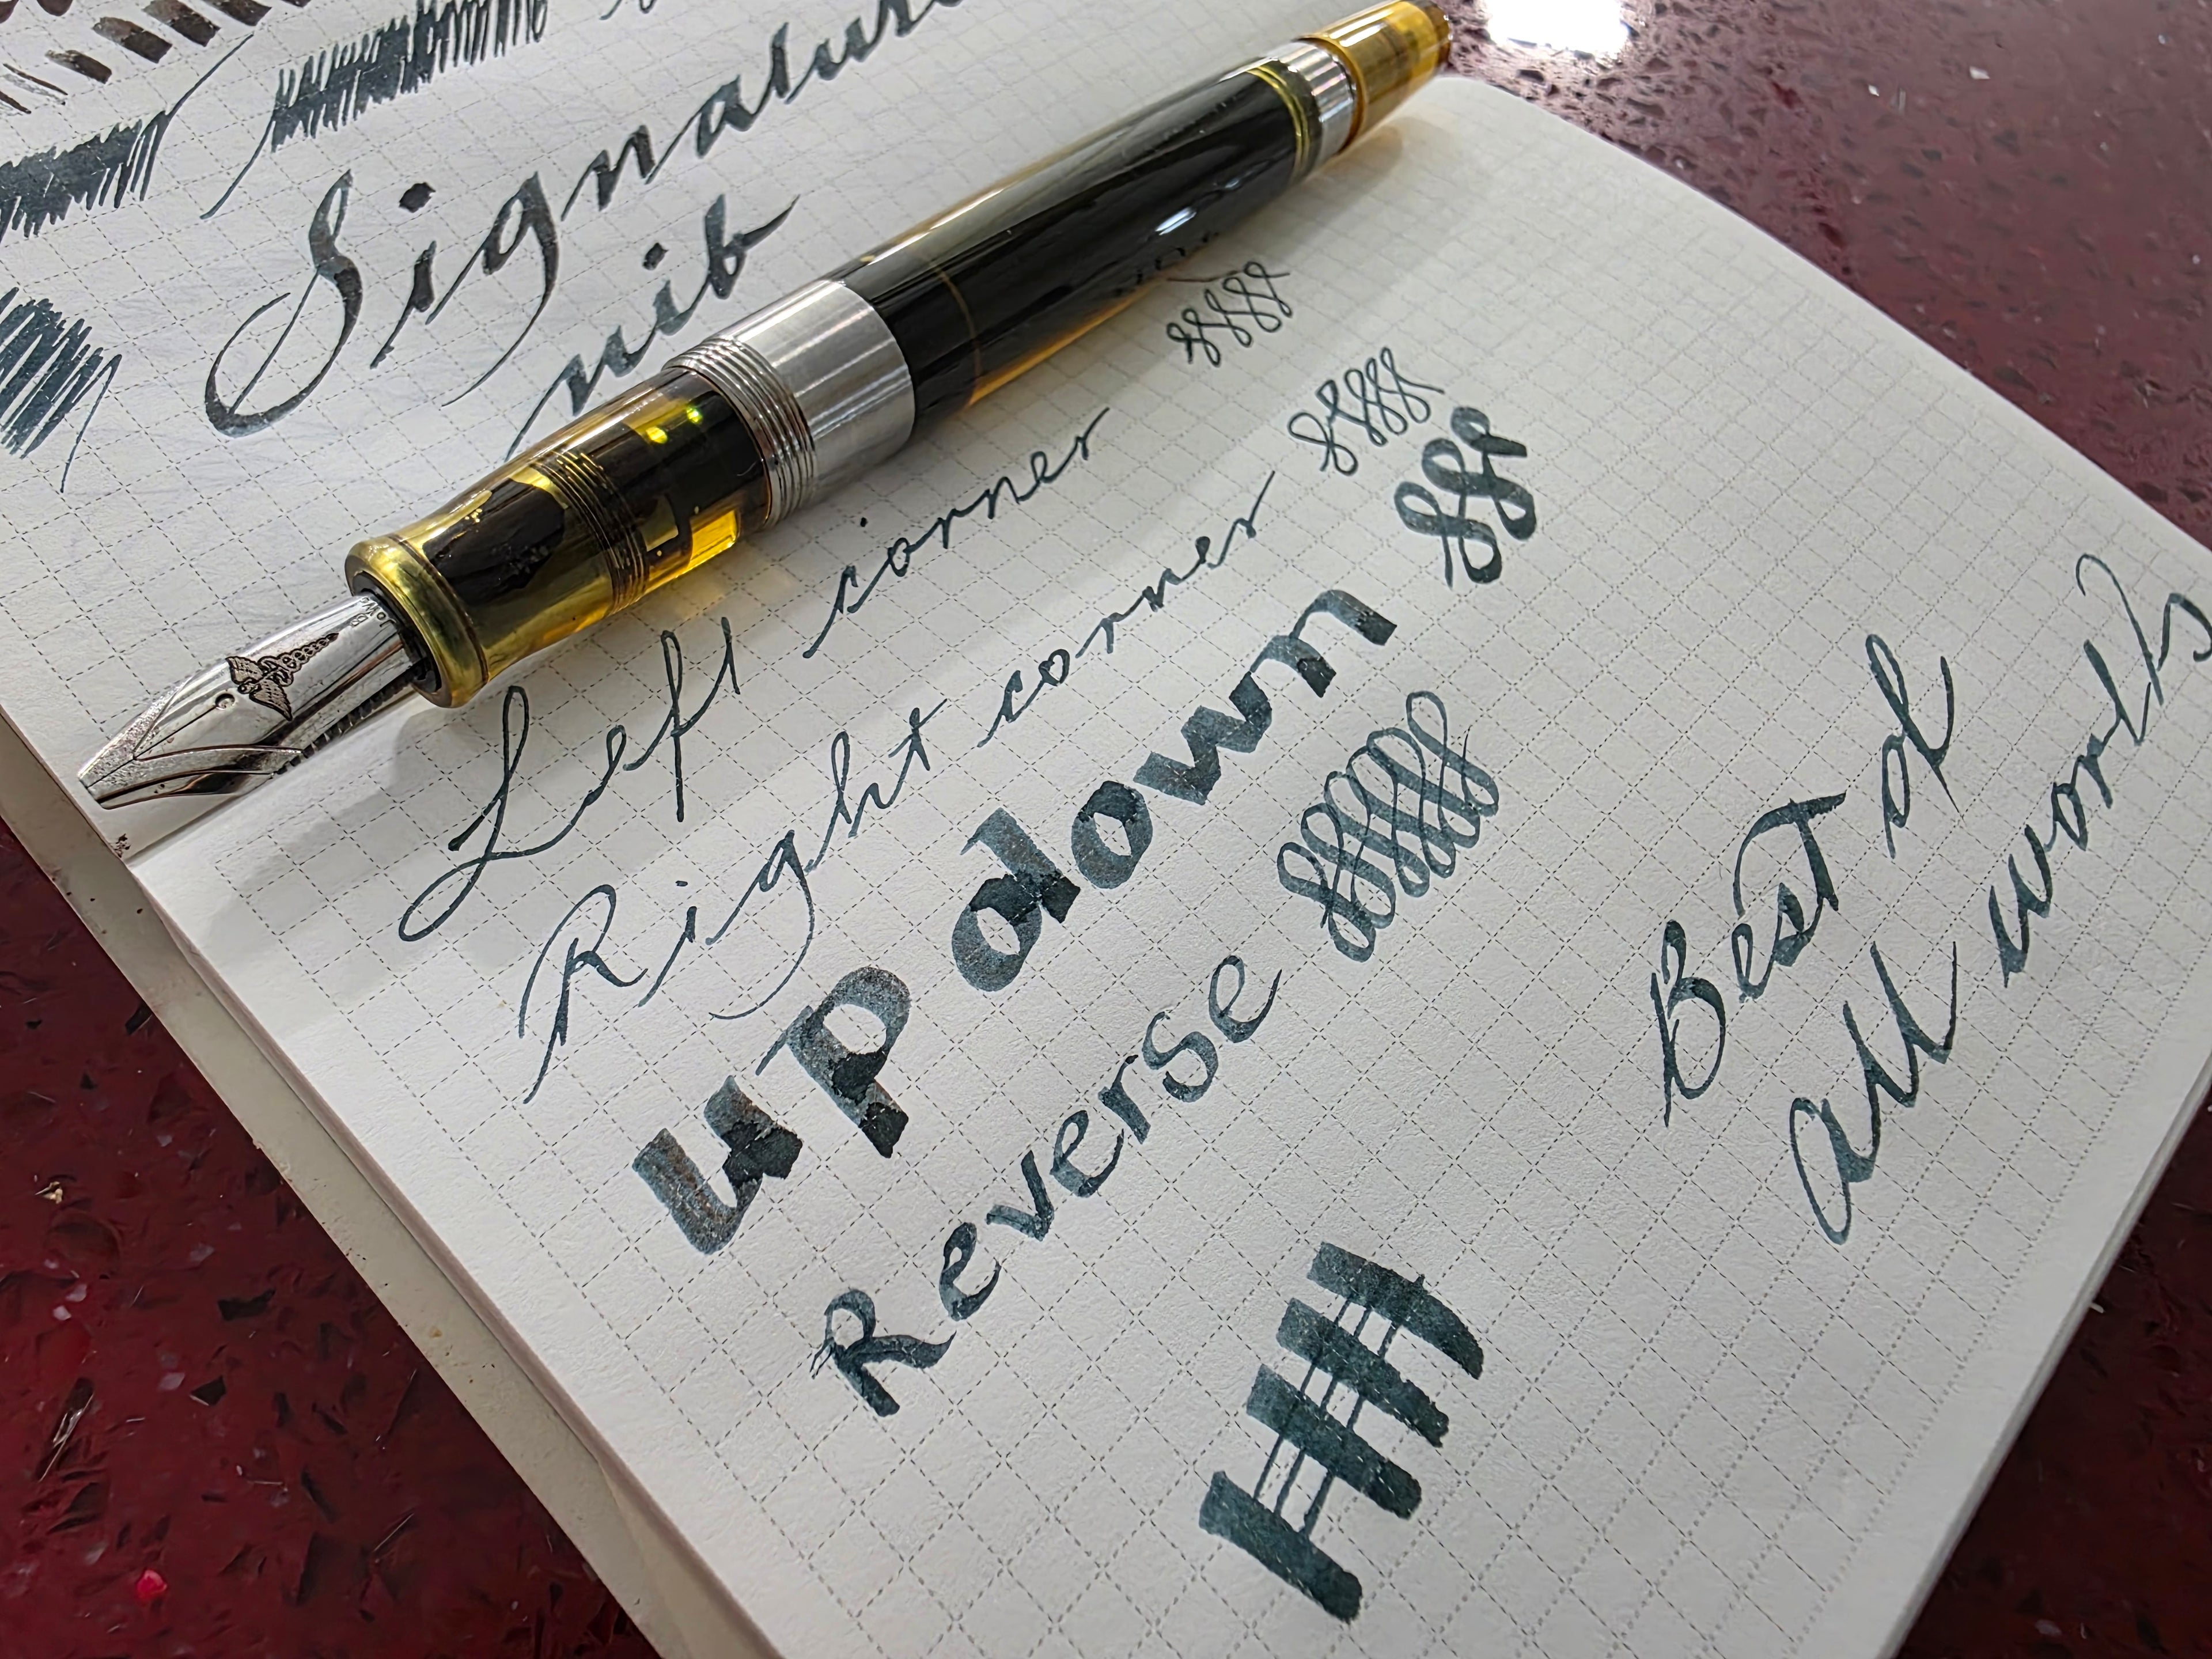 Signature
nib
Left corner
Right corner
up down
Reverse
Best of
all worlds